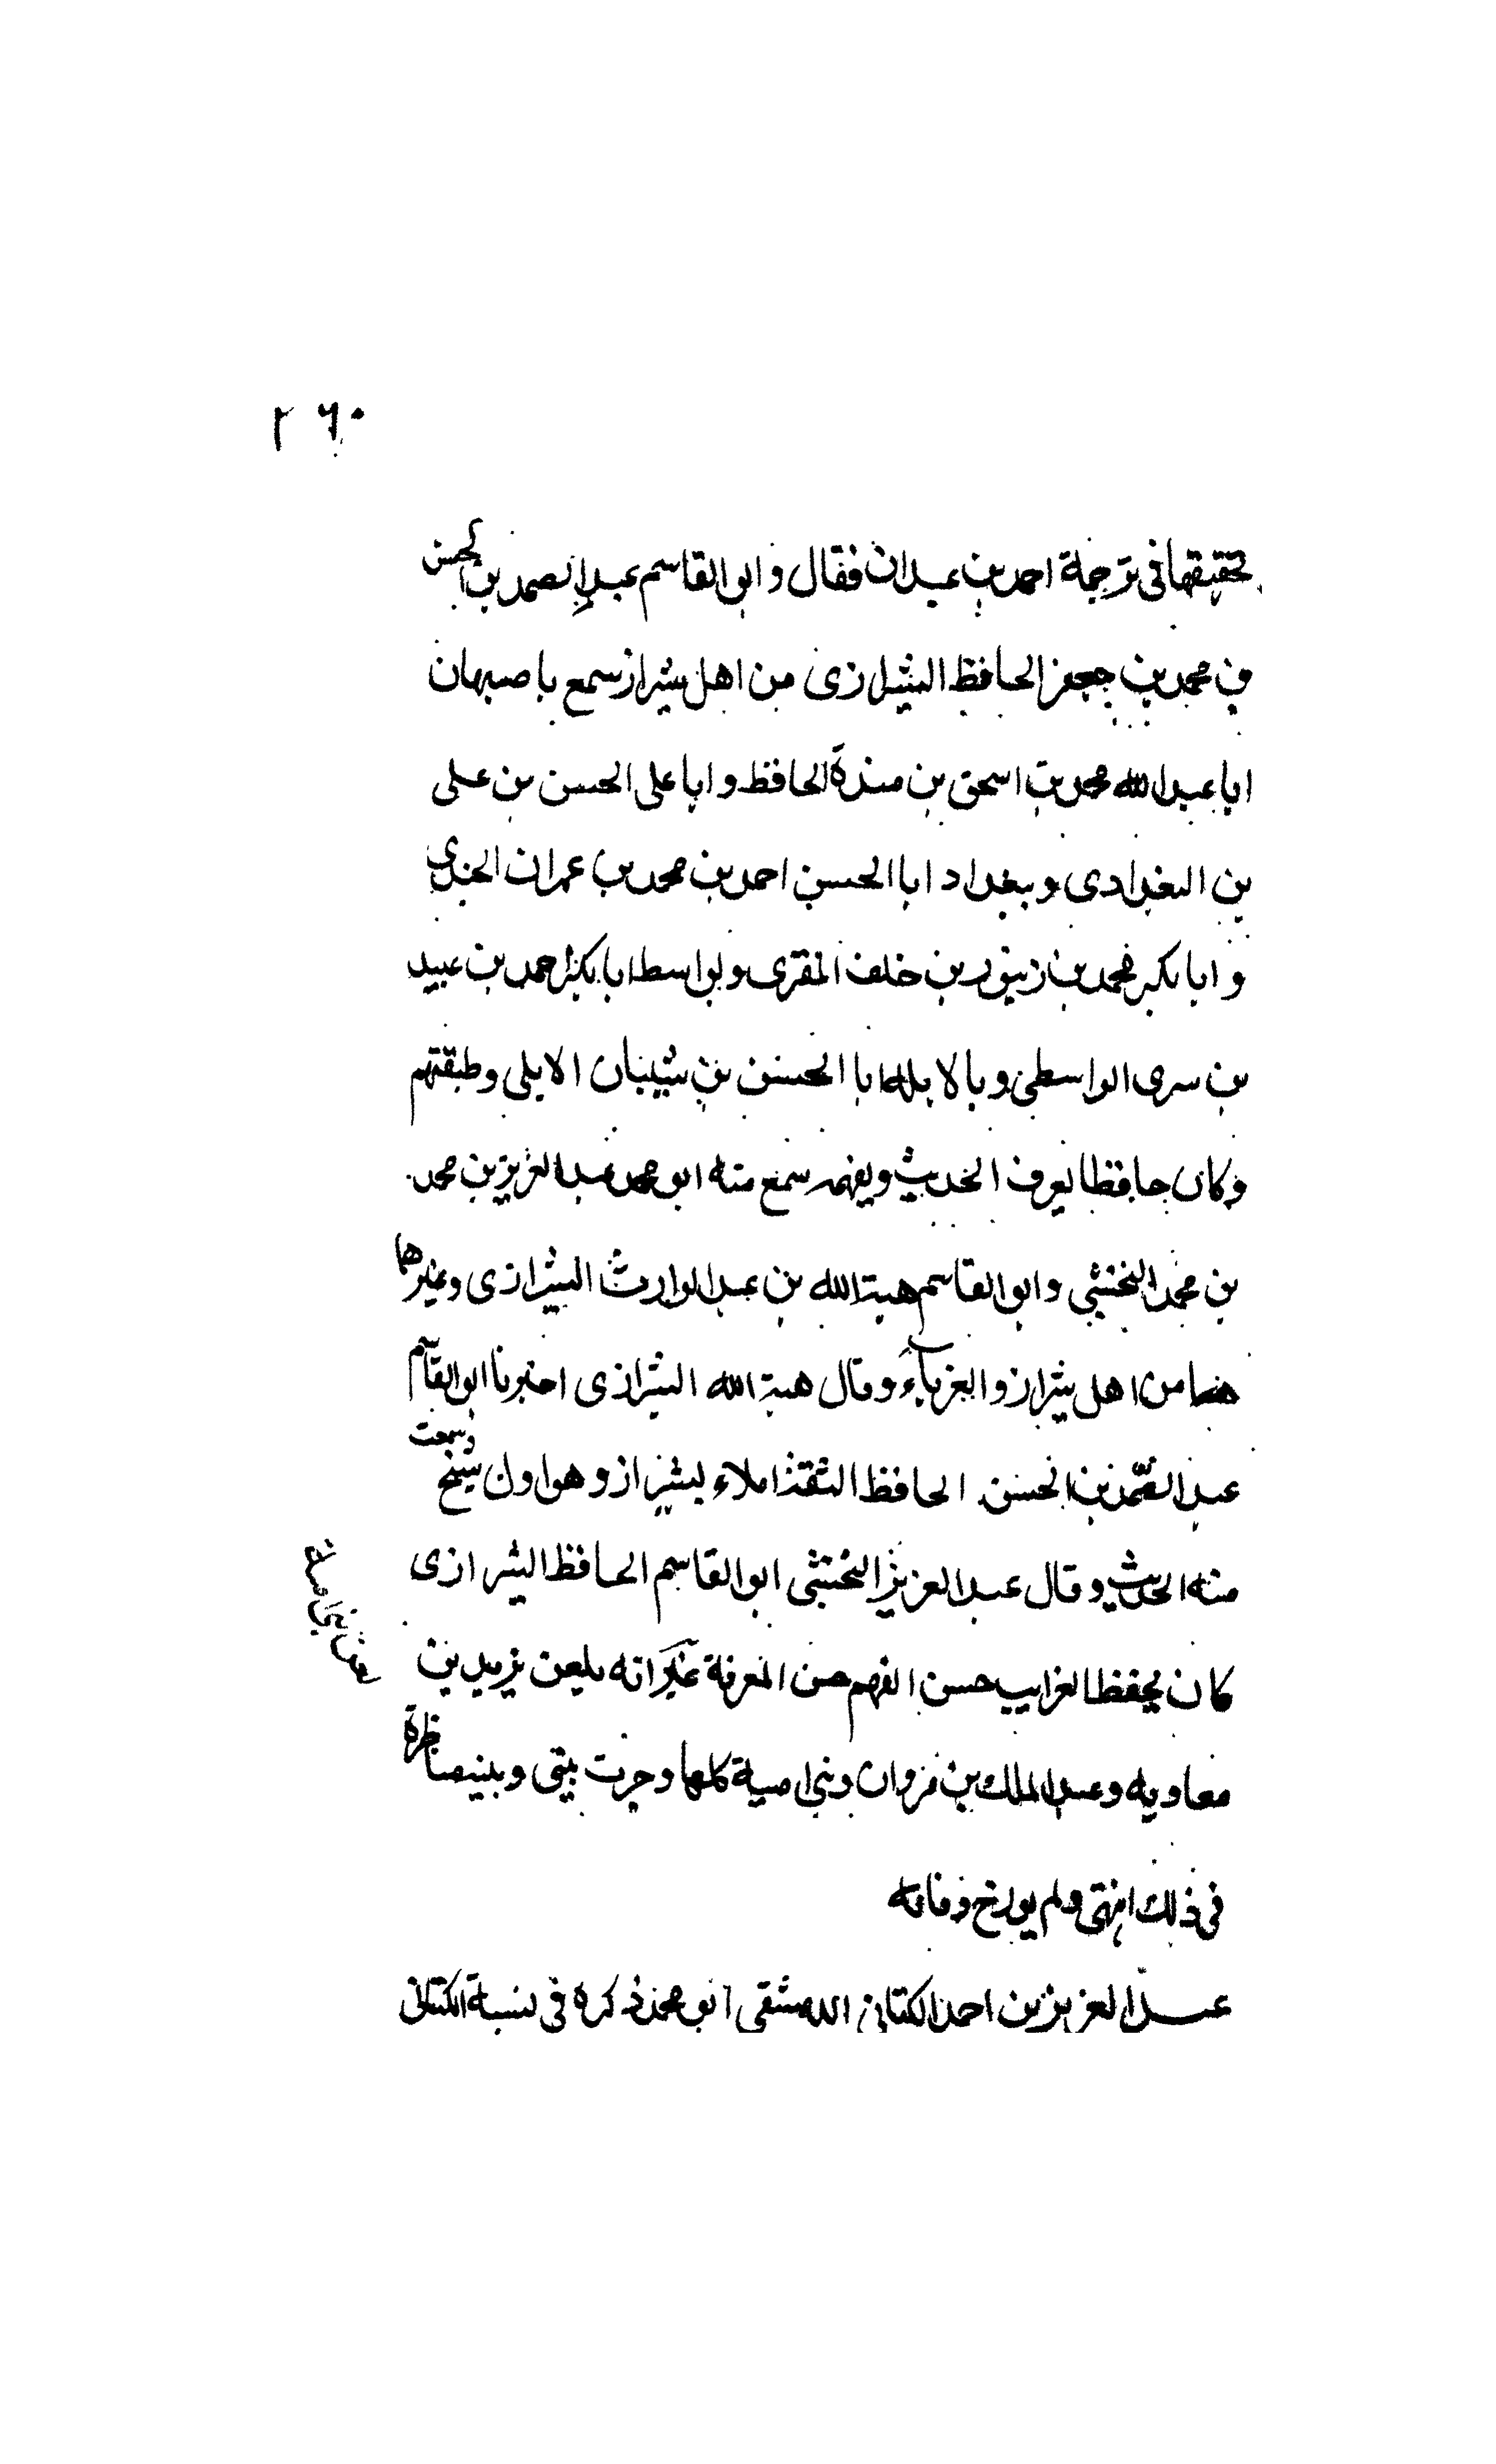 ٢٦٠
تحقيقها في ترجمة احمد بن عبدان فقال وابو القاسم عبد الصمد بن الحسن
بن محمد بن جعفر الحافظ الشيرازى من اهل شيراز سمع باصبهان
ابا عبد الله محمد بن اسحق بن مندة الحافظ وابا على الحسن بن على
بن البغدادى وببغداد ابا الحسن احمد بن محمد بن عمران الجندى
و ابا بكر محمد بن زنبور بن خلف المقرى وبواسط ابا بكر احمد بن عبيد
بن سرى الواسطى وبالابله ابا الحسن بن شيبان الابلى وطبقتهم
وكان حافظا يعرف الحديث ويفهمه سمع منه ابو محمد عبد العزيز بن محمد
بن محمد النخشبى وابو القاسم هبة الله بن عبد الوارث الشيرازى وغيرهما
من اهل شيراز والغرباء وقال هبة الله الشيرازى اخبرنا ابو القاسم
عبد الصمد بن الحسن الحافظ الثقة املاء بشيراز وهو اول شيخ سمعت
منه الحديث وقال عبد العزيز النخشبى ابو القاسم الحافظ الشيرازى
كان يحفظ الغرايب حسن الفهم حسن المعرفة غير انه يلعن يزيد بن
معاويه وعبد الملك بن مروان وبنى امية كلها وجرت بينى وبينه مناظرة
فى ذلك انتهى ولم يورخ وفاته
عبد العزيز بن احمد الكتانى الدمشقى ابو محمد ذكره فى نسبة الكتانى
لعن بنى امية